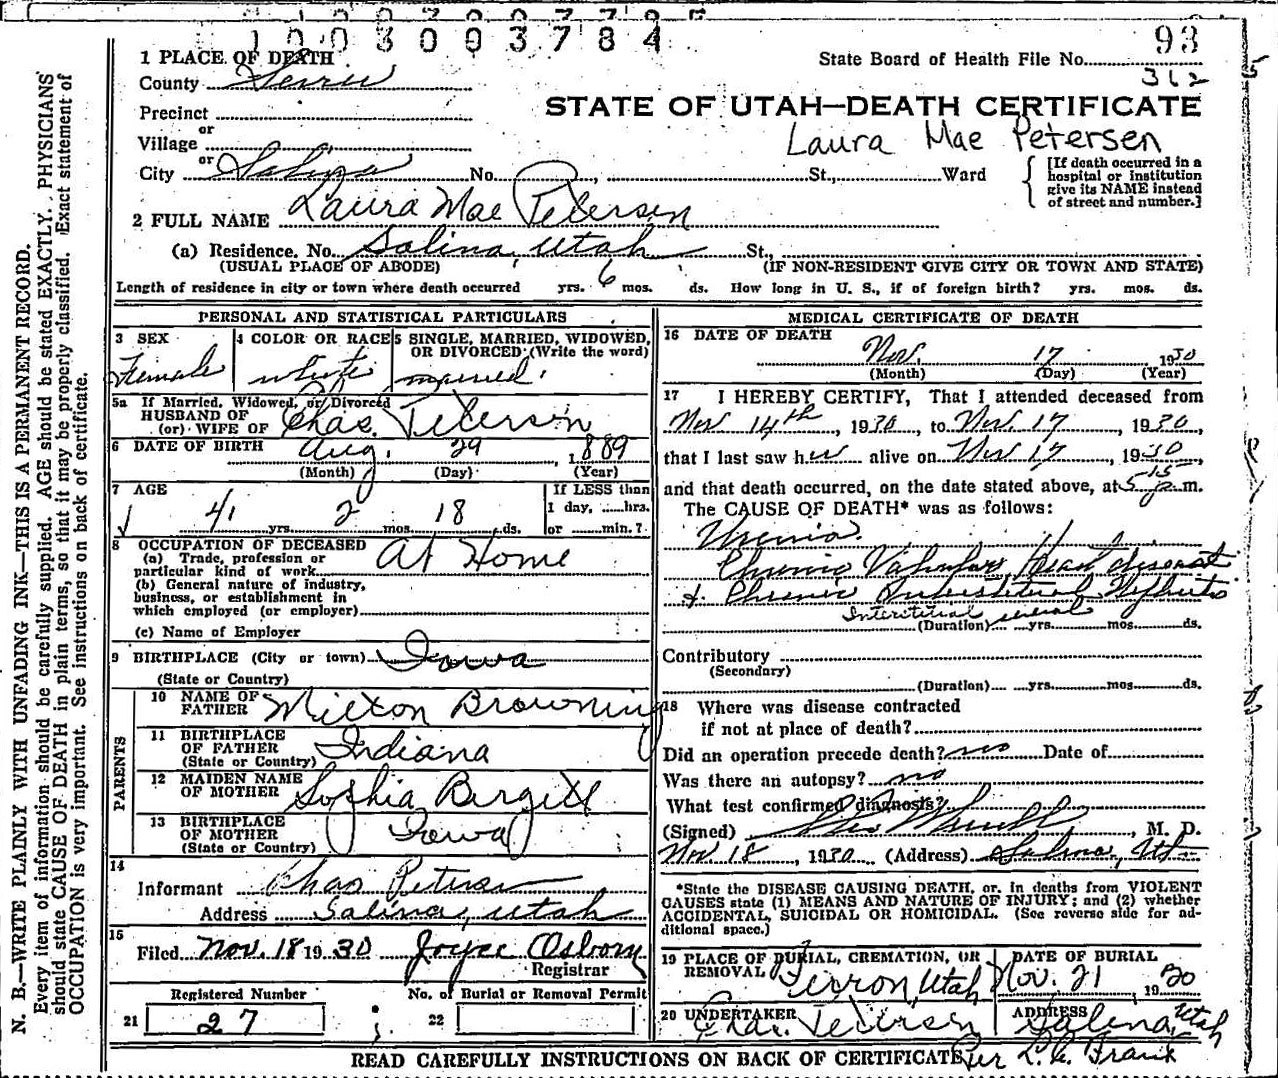 1003003784
93
1 PLACE OF DEATH
State Board of Health File No.
312
County Sevier
STATE OF UTAH—DEATH CERTIFICATE
Precinct
or
Laura Mae Petersen
Village
or
City Salina No. St., Ward
[If death occurred in a hospital or institution give its NAME instead of street and number.]
2 FULL NAME Laura Mae Petersen
(a) Residence. No. Salina, Utah St.,
(USUAL PLACE OF ABODE) (IF NON-RESIDENT GIVE CITY OR TOWN AND STATE)
Length of residence in city or town where death occurred yrs. 6 mos. ds. How long in U. S., if of foreign birth? yrs. mos. ds.
PERSONAL AND STATISTICAL PARTICULARS
3 SEX Female
4 COLOR OR RACE white
5 SINGLE, MARRIED, WIDOWED, OR DIVORCED (Write the word) married
5a If Married, Widowed, or Divorced
HUSBAND OF
(or) WIFE OF Chas. Petersen
6 DATE OF BIRTH Aug. 29, 1889
(Month) (Day) (Year)
7 AGE
41 yrs. 2 mos. 18 ds.
If LESS than 1 day, ....hrs. or ....min.?
8 OCCUPATION OF DECEASED
(a) Trade, profession or particular kind of work At Home
(b) General nature of industry, business, or establishment in which employed (or employer)
(c) Name of Employer
9 BIRTHPLACE (City or town) Iowa
(State or Country)
PARENTS
10 NAME OF FATHER Milton Browning
11 BIRTHPLACE OF FATHER (State or Country) Indiana
12 MAIDEN NAME OF MOTHER Sophia
13 BIRTHPLACE OF MOTHER (State or Country) Iowa
14
Informant Chas Petersen
Address Salina, Utah
15
Filed Nov. 18 1930 Joyce Osborn
Registrar
Registered Number
21 27
No. of Burial or Removal Permit
22
MEDICAL CERTIFICATE OF DEATH
16 DATE OF DEATH
Nov. 17 1930
(Month) (Day) (Year)
17 I HEREBY CERTIFY, That I attended deceased from
Nov 14th, 1930, to Nov. 17, 1930,
that I last saw her alive on Nov 17, 1930
and that death occurred, on the date stated above, at 5 15 p. m.
The CAUSE OF DEATH* was as follows:
Uremia.
Chronic Valvular Heart disease
+ Chronic Interstitial Nephritis
Interstitial
(Duration) several yrs. mos. ds.
Contributory
(Secondary)
(Duration) yrs. mos. ds.
18 Where was disease contracted
if not at place of death?
Did an operation precede death? no Date of
Was there an autopsy? no
What test confirmed diagnosis?
(Signed) , M. D.
Nov 18, 1930 (Address) Salina, Ut
*State the DISEASE CAUSING DEATH, or, in deaths from VIOLENT CAUSES state (1) MEANS AND NATURE OF INJURY; and (2) whether ACCIDENTAL, SUICIDAL OR HOMICIDAL. (See reverse side for additional space.)
19 PLACE OF BURIAL, CREMATION, OR REMOVAL Ferron, Utah
DATE OF BURIAL Nov. 21 1930
20 UNDERTAKER Chas. Petersen
ADDRESS Salina, Utah
Per
READ CAREFULLY INSTRUCTIONS ON BACK OF CERTIFICATE
N. B.—WRITE PLAINLY WITH UNFADING INK—THIS IS A PERMANENT RECORD.
Every item of information should be carefully supplied. AGE should be stated EXACTLY. PHYSICIANS should state CAUSE OF DEATH in plain terms, so that it may be properly classified. Exact statement of OCCUPATION is very important. See instructions on back of certificate.